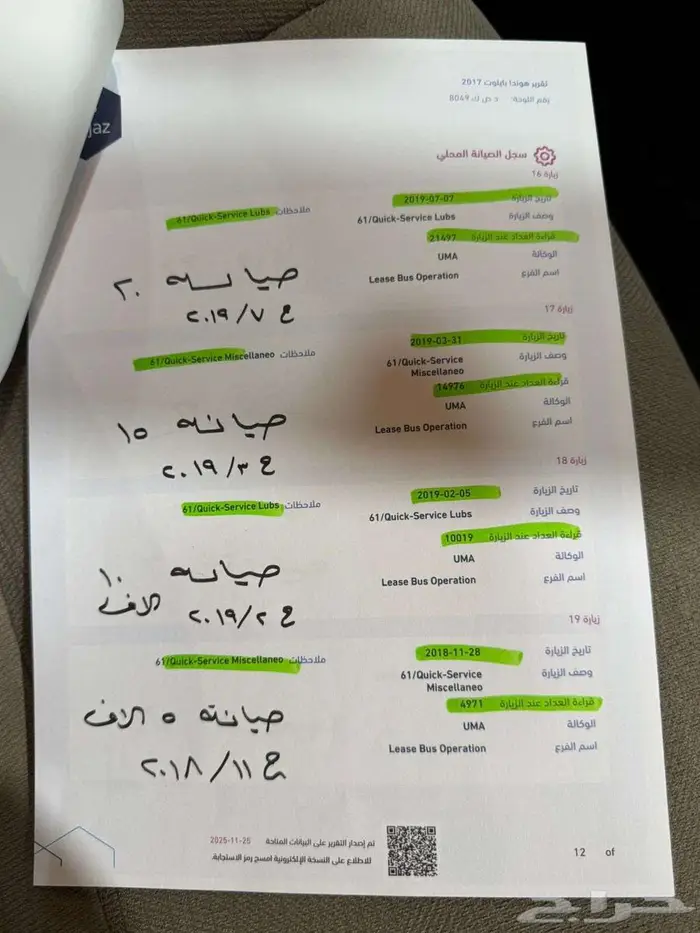 jaz
تقرير هوندا بايلوت 2017
رقم اللوحة: د ص ك 8049
سجل الصيانة المحلي
زيارة 16
تاريخ الزيارة 2019-07-07
وصف الزيارة 61/Quick-Service Lubs
ملاحظات 61/Quick-Service Lubs
قراءة العداد عند الزيارة 21497
الوكالة UMA
اسم الفرع Lease Bus Operation
صيانه ٢٠
ع ٧/ ٢٠١٩
زيارة 17
تاريخ الزيارة 2019-03-31
وصف الزيارة 61/Quick-Service Miscellaneo
ملاحظات 61/Quick-Service Miscellaneo
قراءة العداد عند الزيارة 14976
الوكالة UMA
اسم الفرع Lease Bus Operation
صيانه ١٥
ع ٣/ ٢٠١٩
زيارة 18
تاريخ الزيارة 2019-02-05
وصف الزيارة 61/Quick-Service Lubs
ملاحظات 61/Quick-Service Lubs
قراءة العداد عند الزيارة 10019
الوكالة UMA
اسم الفرع Lease Bus Operation
صيانه ١٠
الاف
ع ٢/ ٢٠١٩
زيارة 19
تاريخ الزيارة 2018-11-28
وصف الزيارة 61/Quick-Service Miscellaneo
ملاحظات 61/Quick-Service Miscellaneo
قراءة العداد عند الزيارة 4971
الوكالة UMA
اسم الفرع Lease Bus Operation
صيانة ٥ الاف
ع ١١/ ٢٠١٨
تم إصدار التقرير على البيانات المتاحة 2025-11-25
للاطلاع على النسخة الإلكترونية امسح رمز الاستجابة.
12 of
حراج